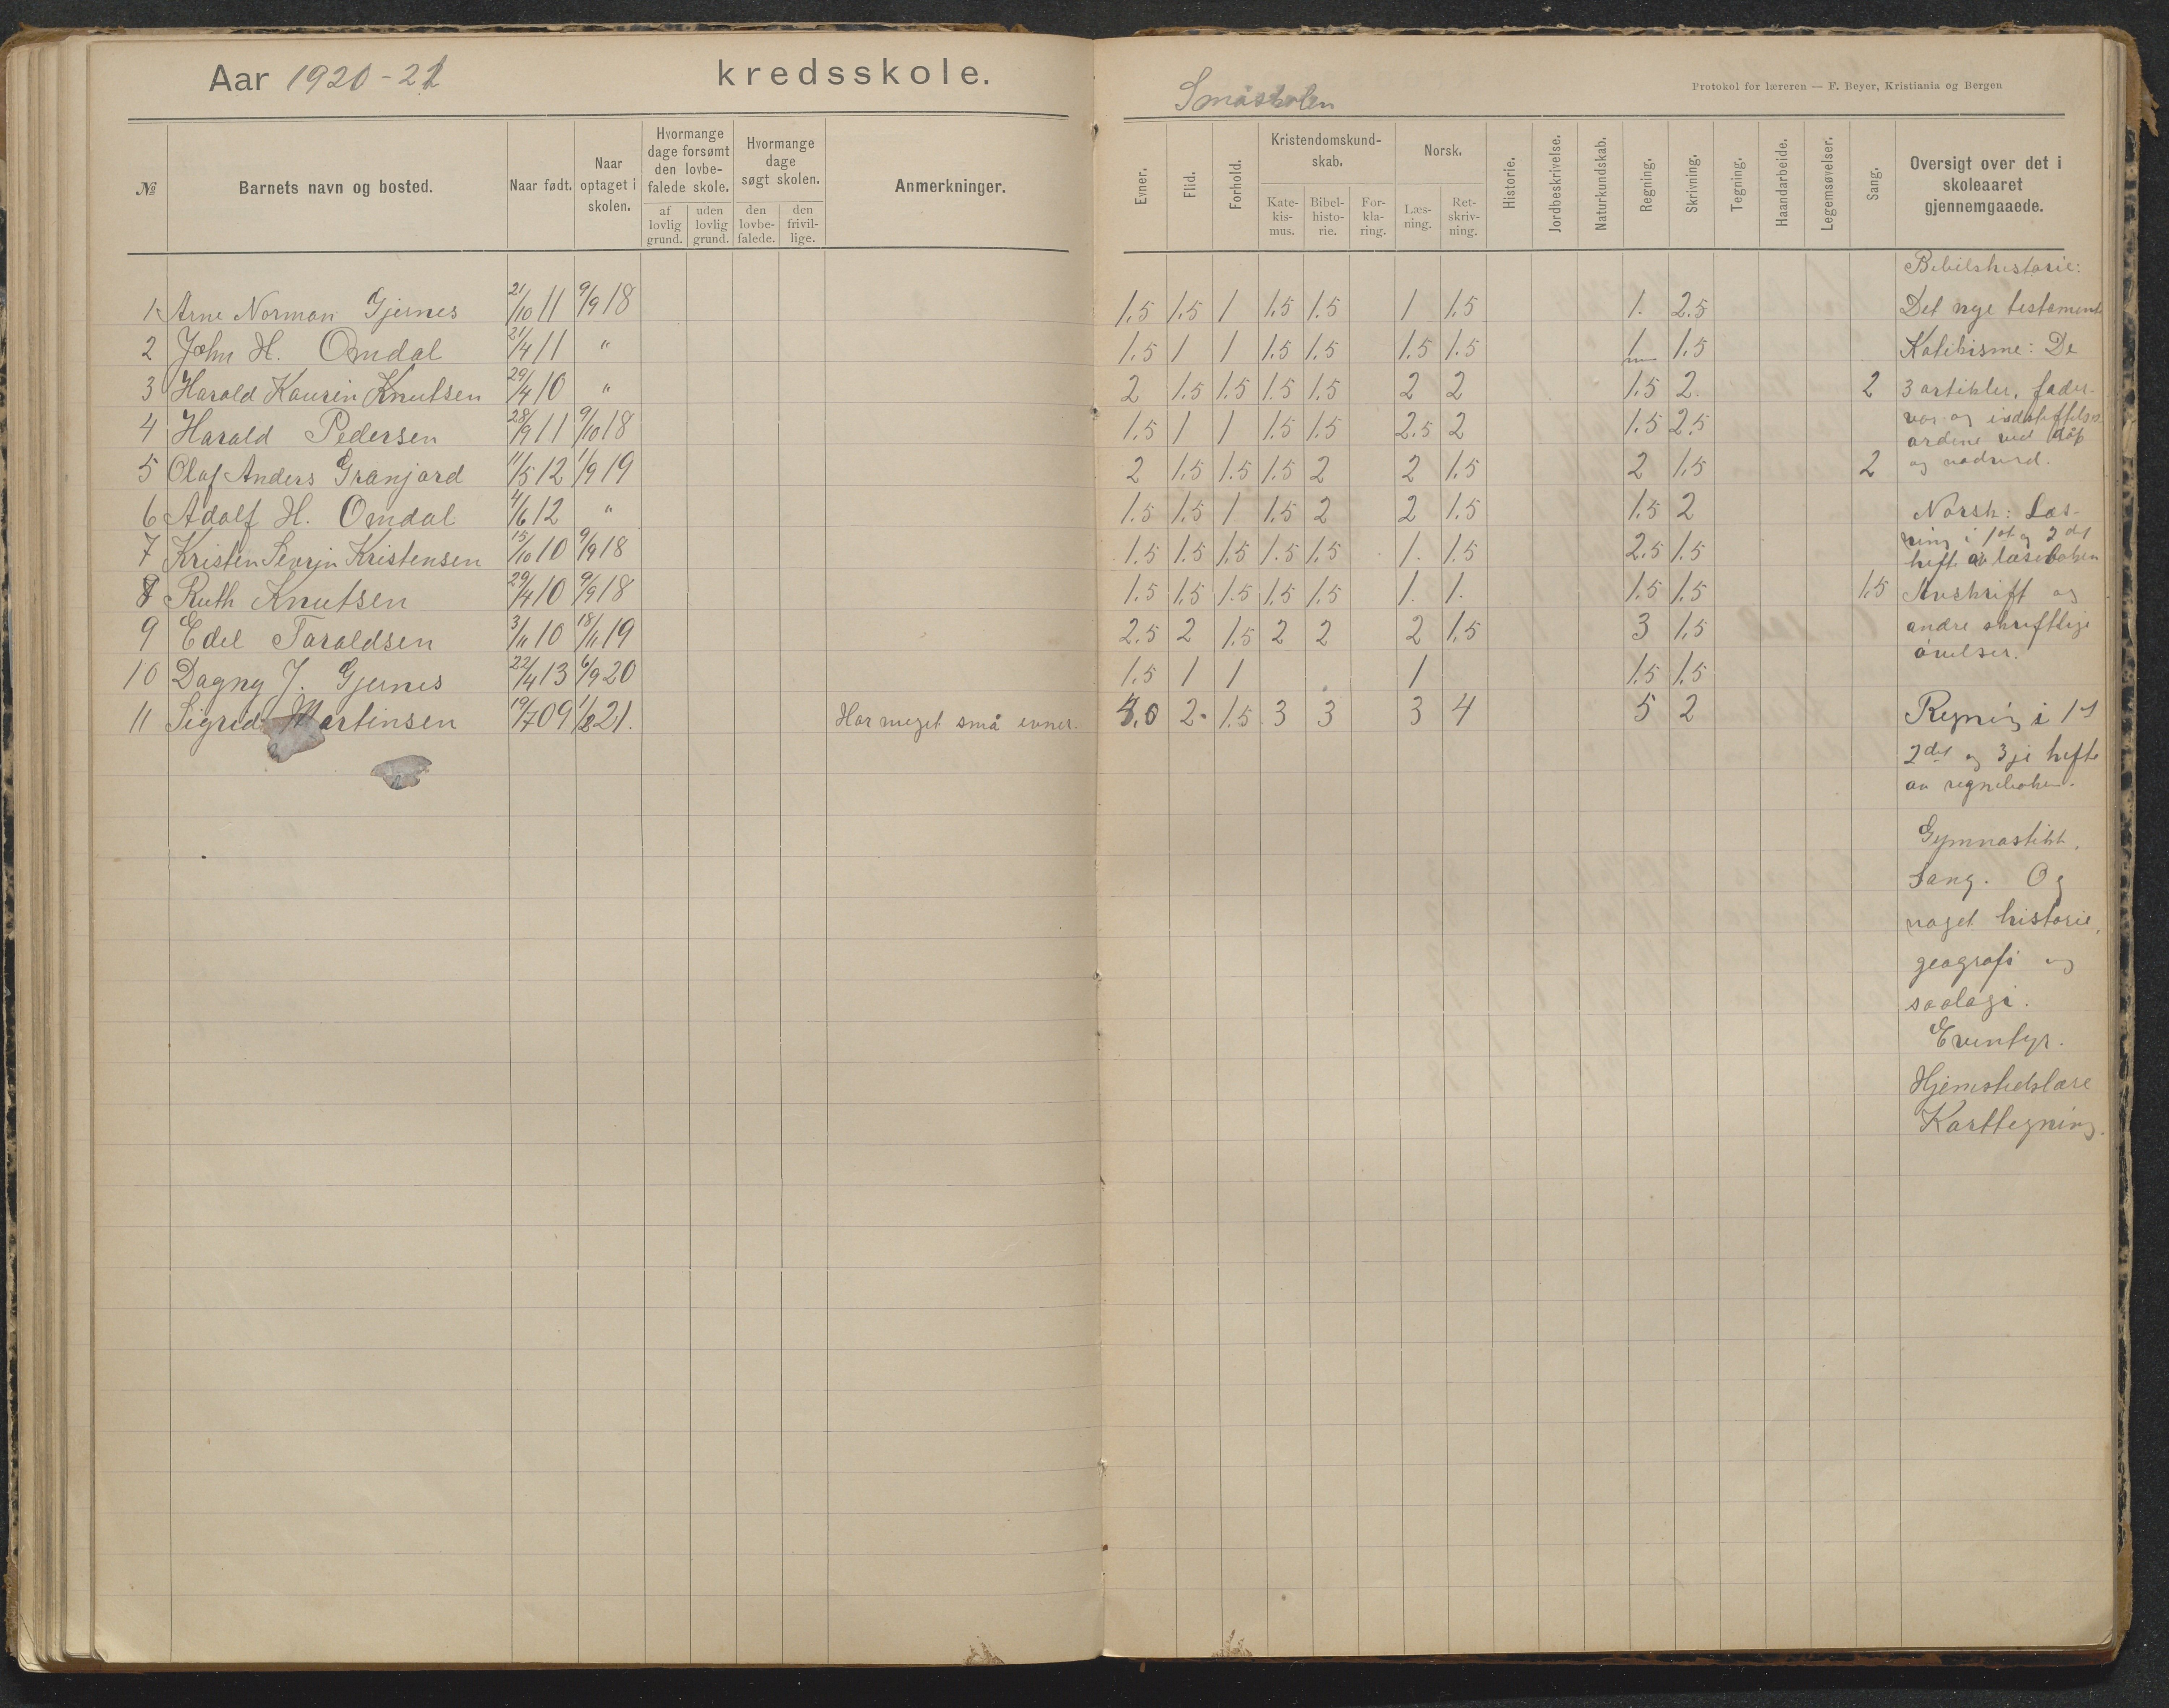 Aar 1920-21 kredsskole.
Småskolen
Protokol for læreren — F. Beyer, Kristiania og Bergen
№ Barnets navn og bosted. Naar født. Naar optaget i skolen. Hvormange dage forsømt den lovbefalede skole. af lovlig grund. uden lovlig grund. Hvormange dage søgt skolen. den lovbefalede. den frivillige. Anmerkninger.
Evner. Flid. Forhold. Kristendomskundskab. Katekismus. Bibelhistorie. Forklaring. Norsk. Læsning. Retskrivning. Historie. Jordbeskrivelse. Naturkundskab. Regning. Skrivning. Tegning. Haandarbeide. Legemsøvelser. Sang. Oversigt over det i skoleaaret gjennemgaaede.
1 Arne Norman Gjernes 21/10 11 9/9 18 1.5 1.5 1 1.5 1.5 1 1.5 1. 2.5
2 John H. Omdal 21/4 11 " 1.5 1 1 1.5 1.5 1.5 1.5 1 1.5
3 Harald Kaurin Knutsen 29/4 10 " 2 1.5 1.5 1.5 1.5 2 2 1.5 2 2
4 Harald Pedersen 28/9 11 9/10 18 1.5 1 1 1.5 1.5 2.5 2 1.5 2.5
5 Olaf Anders Granjord 11/5 12 1/9 19 2 1.5 1.5 1.5 2 2 1.5 2 1.5 2
6 Adolf H. Omdal 4/6 12 " 1.5 1.5 1 1.5 2 2 1.5 1.5 2
7 Kristen Sevrin Kristensen 15/10 10 9/9 18 1.5 1.5 1.5 1.5 1.5 1. 1.5 2.5 1.5
8 Ruth Knutsen 29/4 10 9/9 18 1.5 1.5 1.5 1.5 1.5 1. 1. 1.5 1.5 1.5
9 Edel Taraldsen 3/11 10 18/11 19 2.5 2 1.5 2 2 2 1.5 3 1.5
10 Dagny J. Gjernes 22/4 13 6/9 20 1.5 1 1 1 1.5 1.5
11 Sigrid Martinsen 19/7 09 1/2 21. Har meget små evner. 4.0 2 1.5 3 3 3 4 5 2
Bibelshistorie:
Det nye testament
Katekisme: De
3 artikler, fader-
vor og indstiftelses
ordene ved dåp
og nadverd.
Norsk: Læs-
ning i 1ste og 2det
hefte av læseboken
Avskrift og
andre skriftlige
øvelser.
Regning i 1st
2det og 3je hefte
av regneboken.
Gymnastikk.
Sang. Og
noget historie,
geografi og
soologi.
Eventyr.
Hjemstedslære
Karttegning.